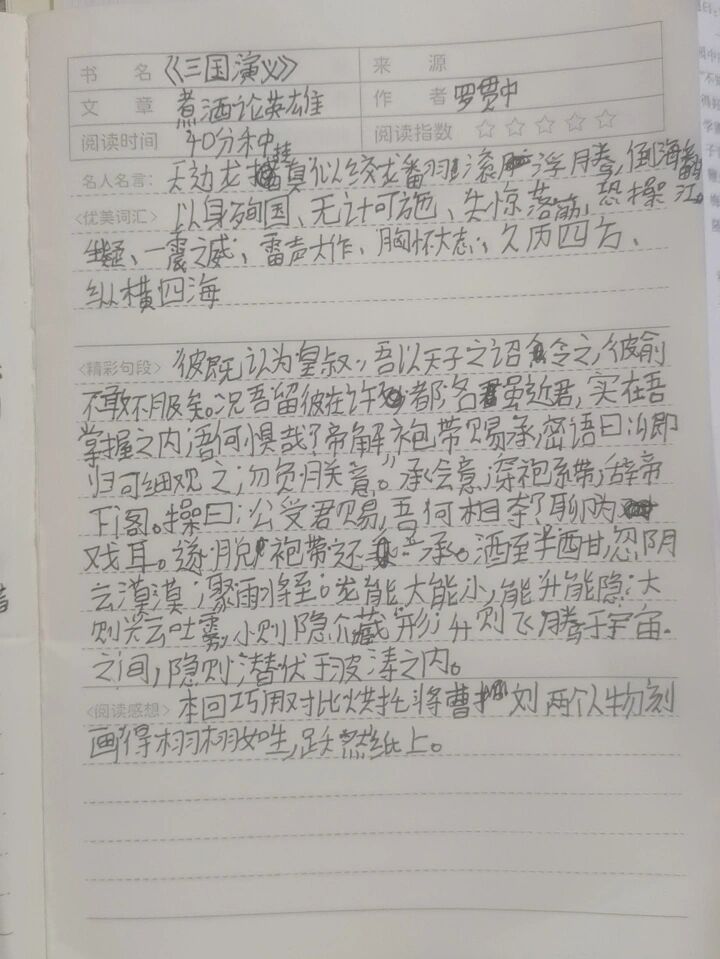 书 名 《三国演义》 来 源
文 章 煮酒论英雄 作 者 罗贯中
阅读时间 40分钟 阅读指数 ☆☆☆☆☆
名人名言: 天边龙挂真似绞龙番羽滚 浮腾,倒海翻江。
<优美词汇> 以身殉国、无计可施、失惊落筯、恐操
生疑、一震之威、雷声大作、胸怀大志、久历四方、
纵横四海
<精彩句段> 彼既认为皇叔,吾以天子之诏令之,彼俞
不敢不服矣。况吾留彼在许都,名虽近君,实在吾
掌握之内,吾何惧哉?帝解袍带赐承,密语曰:即
归可细观之,勿负朕意。”承会意,深袍系带,辞帝
下阁。操曰:公受君赐,吾何相夺?聊为
戏耳。遂脱袍带还承。酒至半酣,忽阴
云漠漠,聚雨将至。龙能大能小,能升能隐;大
则兴云吐雾,小则隐介藏形;升则飞腾于宇宙
之间,隐则潜伏于波涛之内。
<阅读感想> 本回巧用对比烘托将曹操刘两个人物刻
画得栩栩如生,跃然纸上。